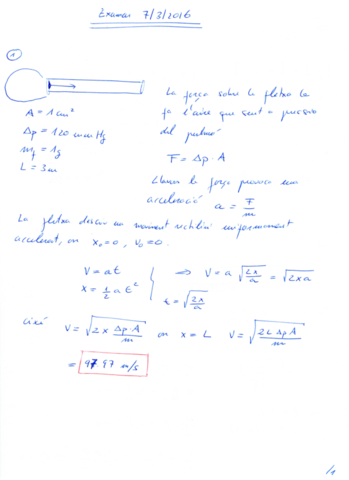 Examen 7/3/2016
1
La força sobre la fletxa la
fa l'aire que sent a pressió
del pulmó
A = 1 cm²
Δp = 120 mm Hg
m_f = 1g
L = 3m
F = Δp · A
Llavors la força provoca una
acceleració a = F/m
La fletxa descriu un moviment rectilini uniformement
accelerat, on x₀=0, v₀=0.
v = at
x = ½ a t²
t = √(2x/a)
⇒ v = a √(2x/a) = √(2xa)
Així v = √(2x Δp·A/m) on x = L v = √(2L Δp A/m)
= 97.97 m/s
/1